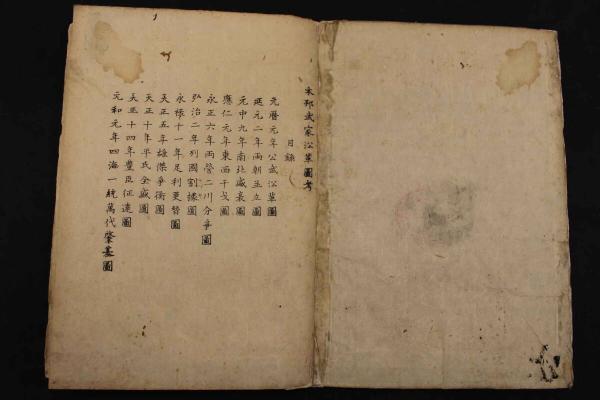 本邦武家沿革圖考
目録
元暦元年公武沿革圖
延元二年兩朝並立圖
元中九年南北盛衰圖
應仁元年東西干戈圖
永正六年両管二川分爭圖
弘治二年列國割據圖
永禄十一年足利更替圖
天正五年雄傑爭衡圖
天正十年平氏全盛圖
天正十四年豊臣征遠圖
元和元年四海一統萬代肇基圖